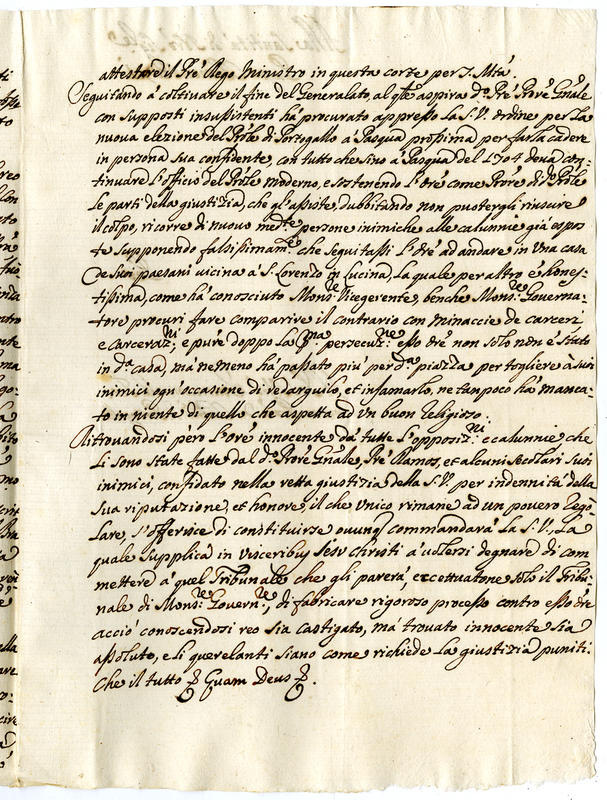 attestare il Pre Rego Ministro in questa corte per S. Mtà.
Seguitando à coltivare il fine del Generalato, al qle aspira do. Pre Prore Gnale
con supposti insussistenti hà procurato appresso la S.V. ordine per la
nuova elezione del Prôle di Portogallo à Pasqua prossima per farla cadere
in persona sua confidente, con tutto che sino à Pasqua del 1704 deva con-
tinuare l'officio del Prôle moderno, e sostenendo l'Ore come Prore di do. Prôle
le parti della giustizia, che gl'assiste, dubbitando non potergli riuscire
il colpo, ricorre di nuovo medte. persone inimiche alle calunnie già espos
te supponendo falsissimamte. che seguitassi l'Ore ad andare in una casa
de suoi paesani vicina à S. Lorenzo in Lucina, la quale per altro è hones-
tissima, come hà conosciuto Monsre. Vicegerente, benche Monsre. Governa-
tore procuri fare comparire il contrario con minaccie de carceri
e carcerazni; e pure doppo la pma. persecuzne. esso Ore non solo non è stato
in da. casa, mà nemeno hà passato più per da. piazza per togliere à suoi
inimici ogn'occasione di redarguilo, et infamarlo, ne tanpoco hà manca-
to in niente di quello che aspetta ad un buon religioso.
Ritrovandosi però l'Ore innocente da tutte l'opposizni. e calunnie che
li sono state fatte dal do. Prore Gnale, Pre Ramos, et alcuni secolari suoi
inimici, confidato nella retta giustizia della S.V. per indennità della
sua riputazione, et honore, il che unico rimane ad un povero rego-
lare, s'offerisce di constituirse ovunq commandarà la S.V., la
quale supplica in visceribus Jesu Christi à volersi degnare di com
mettere à quel Tribunale che gli parerà, eccettuatone solo il Tribu-
nale di Monsre. Governre., di fabricare rigoroso processo contro esso Ore
acciò conoscendosi reo sia castigato, mà trovato innocente sia
assoluto, e li querelanti siano come richiede la giustizia puniti.
Che il tutto Quam Deus.